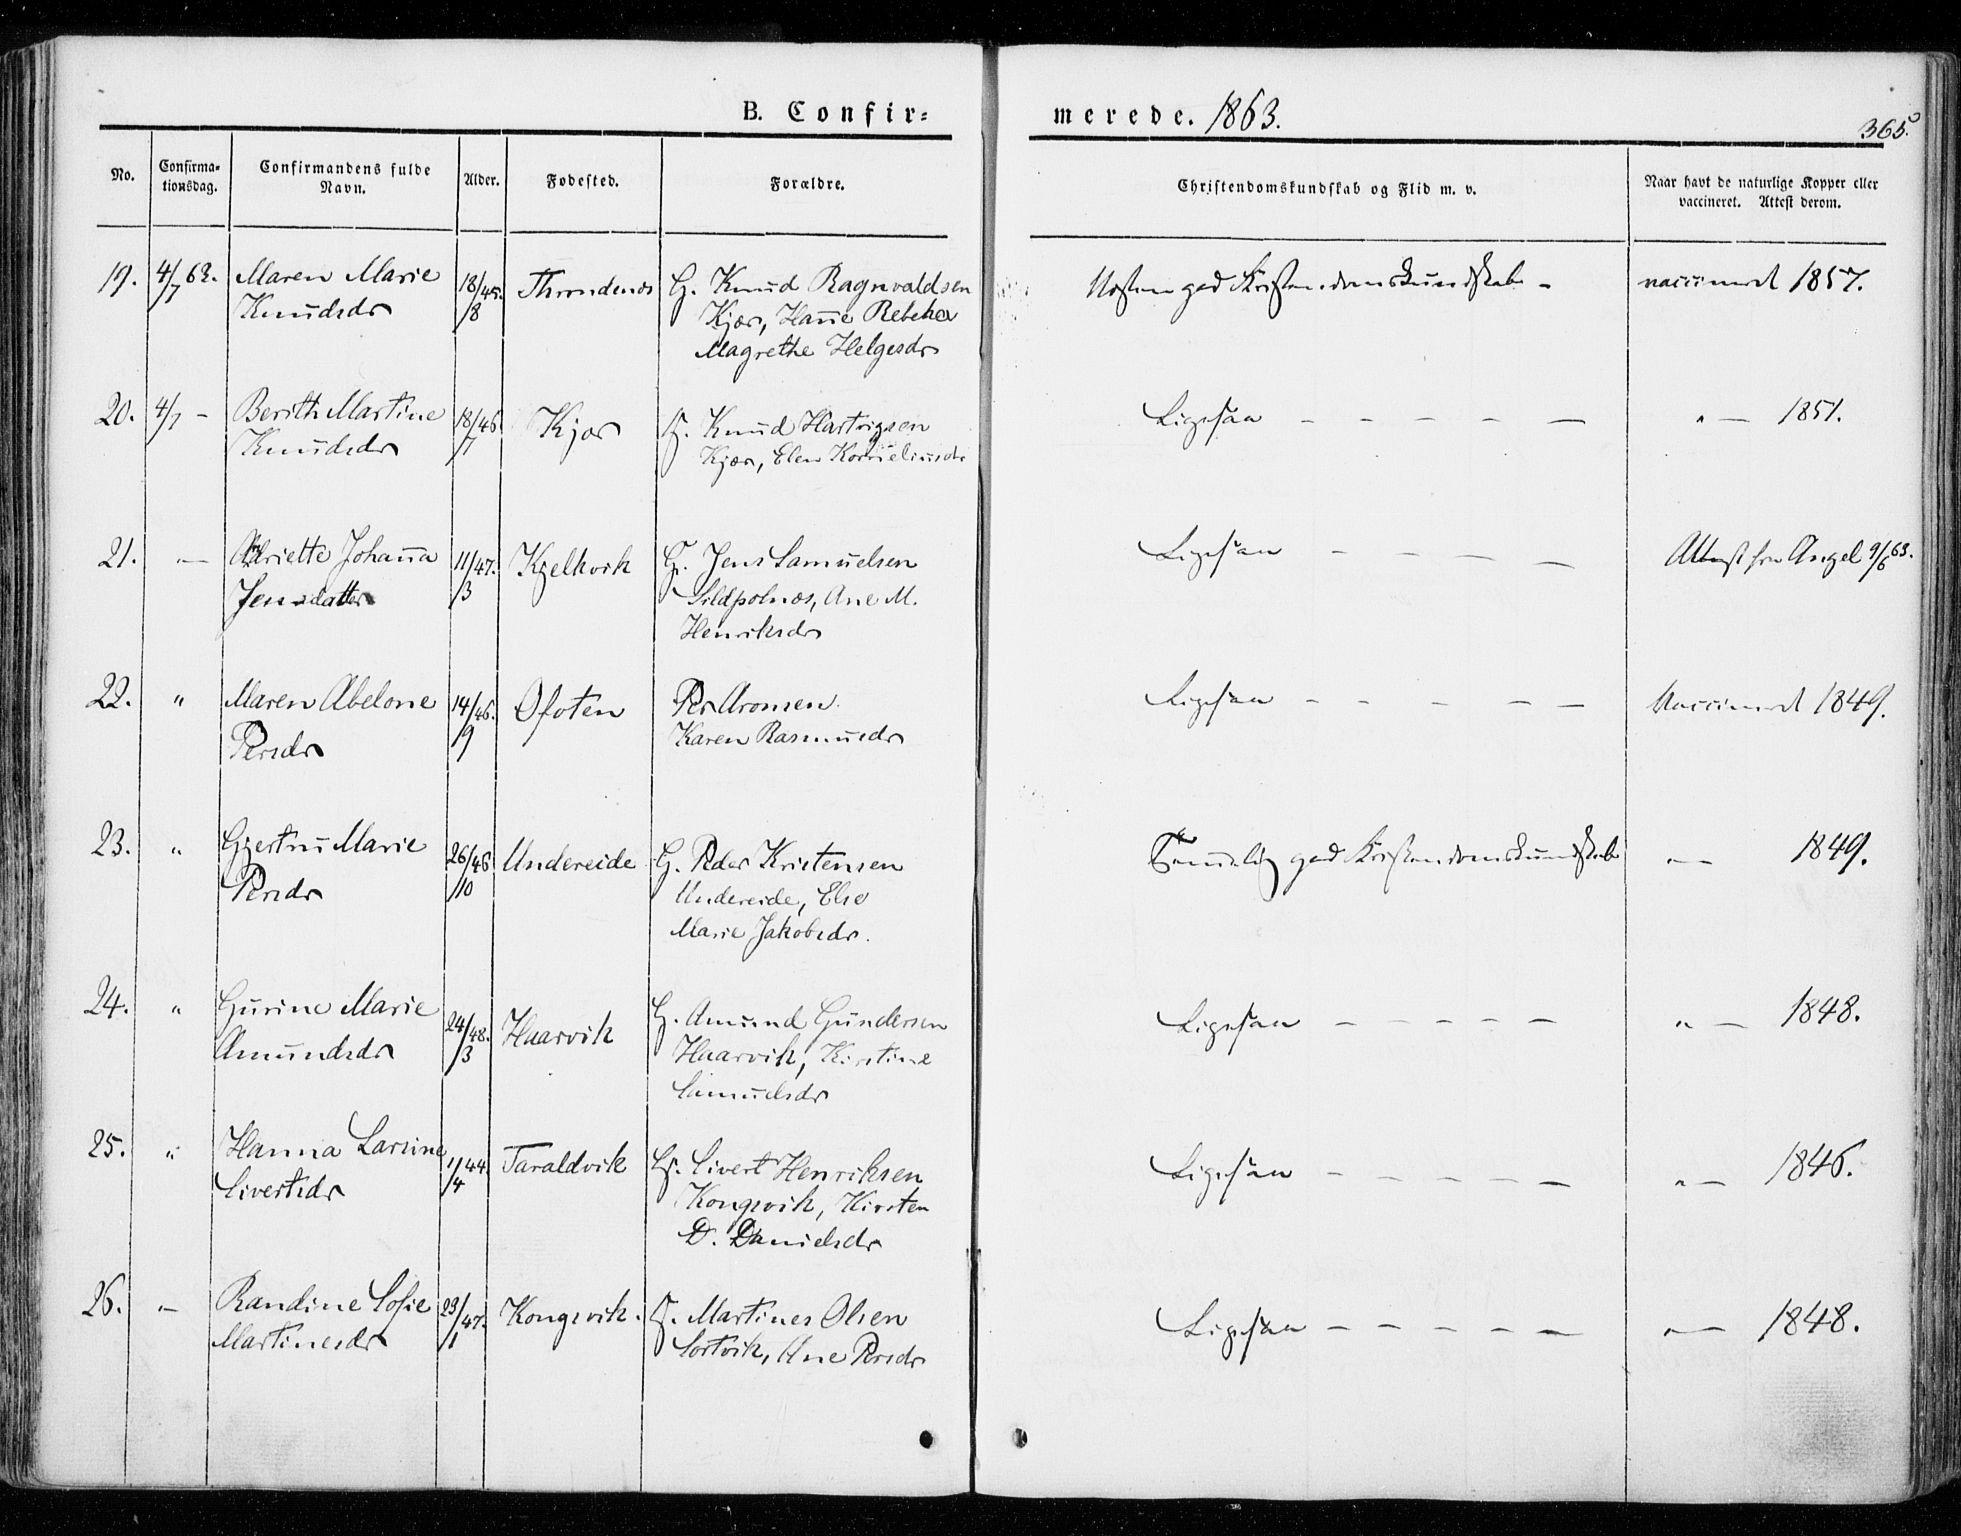 B. Confir=
merede. 1863.
365.
No.
Confirma-
tionsdag.
Confirmandens fulde
Navn.
Alder.
Fødested.
Forældre.
Christendomskundskab og Flid m. v.
Naar havt de naturlige Kopper eller
vaccineret. Attest derom.
19. 4/7 63. Maren Marie 18/8 45. Throndenæs G. Knud Ragnvaldsen
Knudsdr Kjær, Hane Rebekka
Magrethe Helgesdr
god Kristendomskundskab - vaccineret 1857.
20. 4/7 - Berith Martine 18/7 46 Kjær G. Knud Hartvigsen
Knudsdr Kjær, Elen Korneliusdr
Ligesaa - - - - - " - 1851.
21. - Johana 11/3 47. Kjelkvik G. Jens Samuelsen
Jensdatter Sildpolnæs, Ane M.
Henriksdr
Ligesaa - - - - Attest fra Angel 9/6 63.
22. " Maren Abelone 14/9 46. Ofoten Per Aronsen
Persdr Karen Rasmusdr
Ligesaa - - - - - Vaccineret 1849.
23. " Gjertru Marie 26/10 46 Undereide G. Peder Kristensen
Persdr Undereide, Else
Marie Jakobsdr.
Temmelig god Kristendomskundskab " - 1849.
24. " Gurine Marie 24/3 48. Haarvik G. Amund Gundersen
Amundsdr Haarvik, Kirstine
Samuelsdr
Ligesaa - - - - - " - 1848.
25. " Hanna Larsine 1/4 44. Taraldvik G. Sivert Henriksen
Sivertsdr Kongsvik, Kirsten
D. Danielsdr
Ligesaa - - - - - " - 1846.
26. " - Randine Sofie 23/1 47. Kongsvik. G. Martines Olsen
Martinesdr Sortvik, Ane Persdr
Ligesaa - - - - - " - 1848.